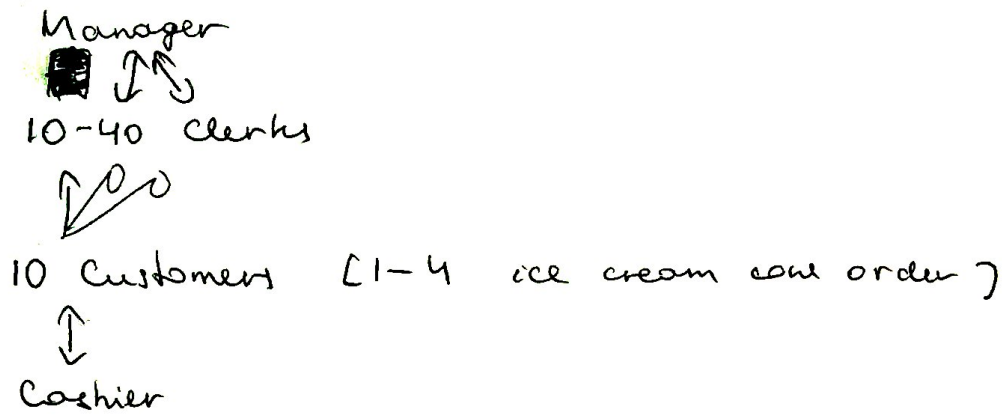 Manager
10-40 Clerks
10 Customers [1-4 ice cream cone order]
Cashier